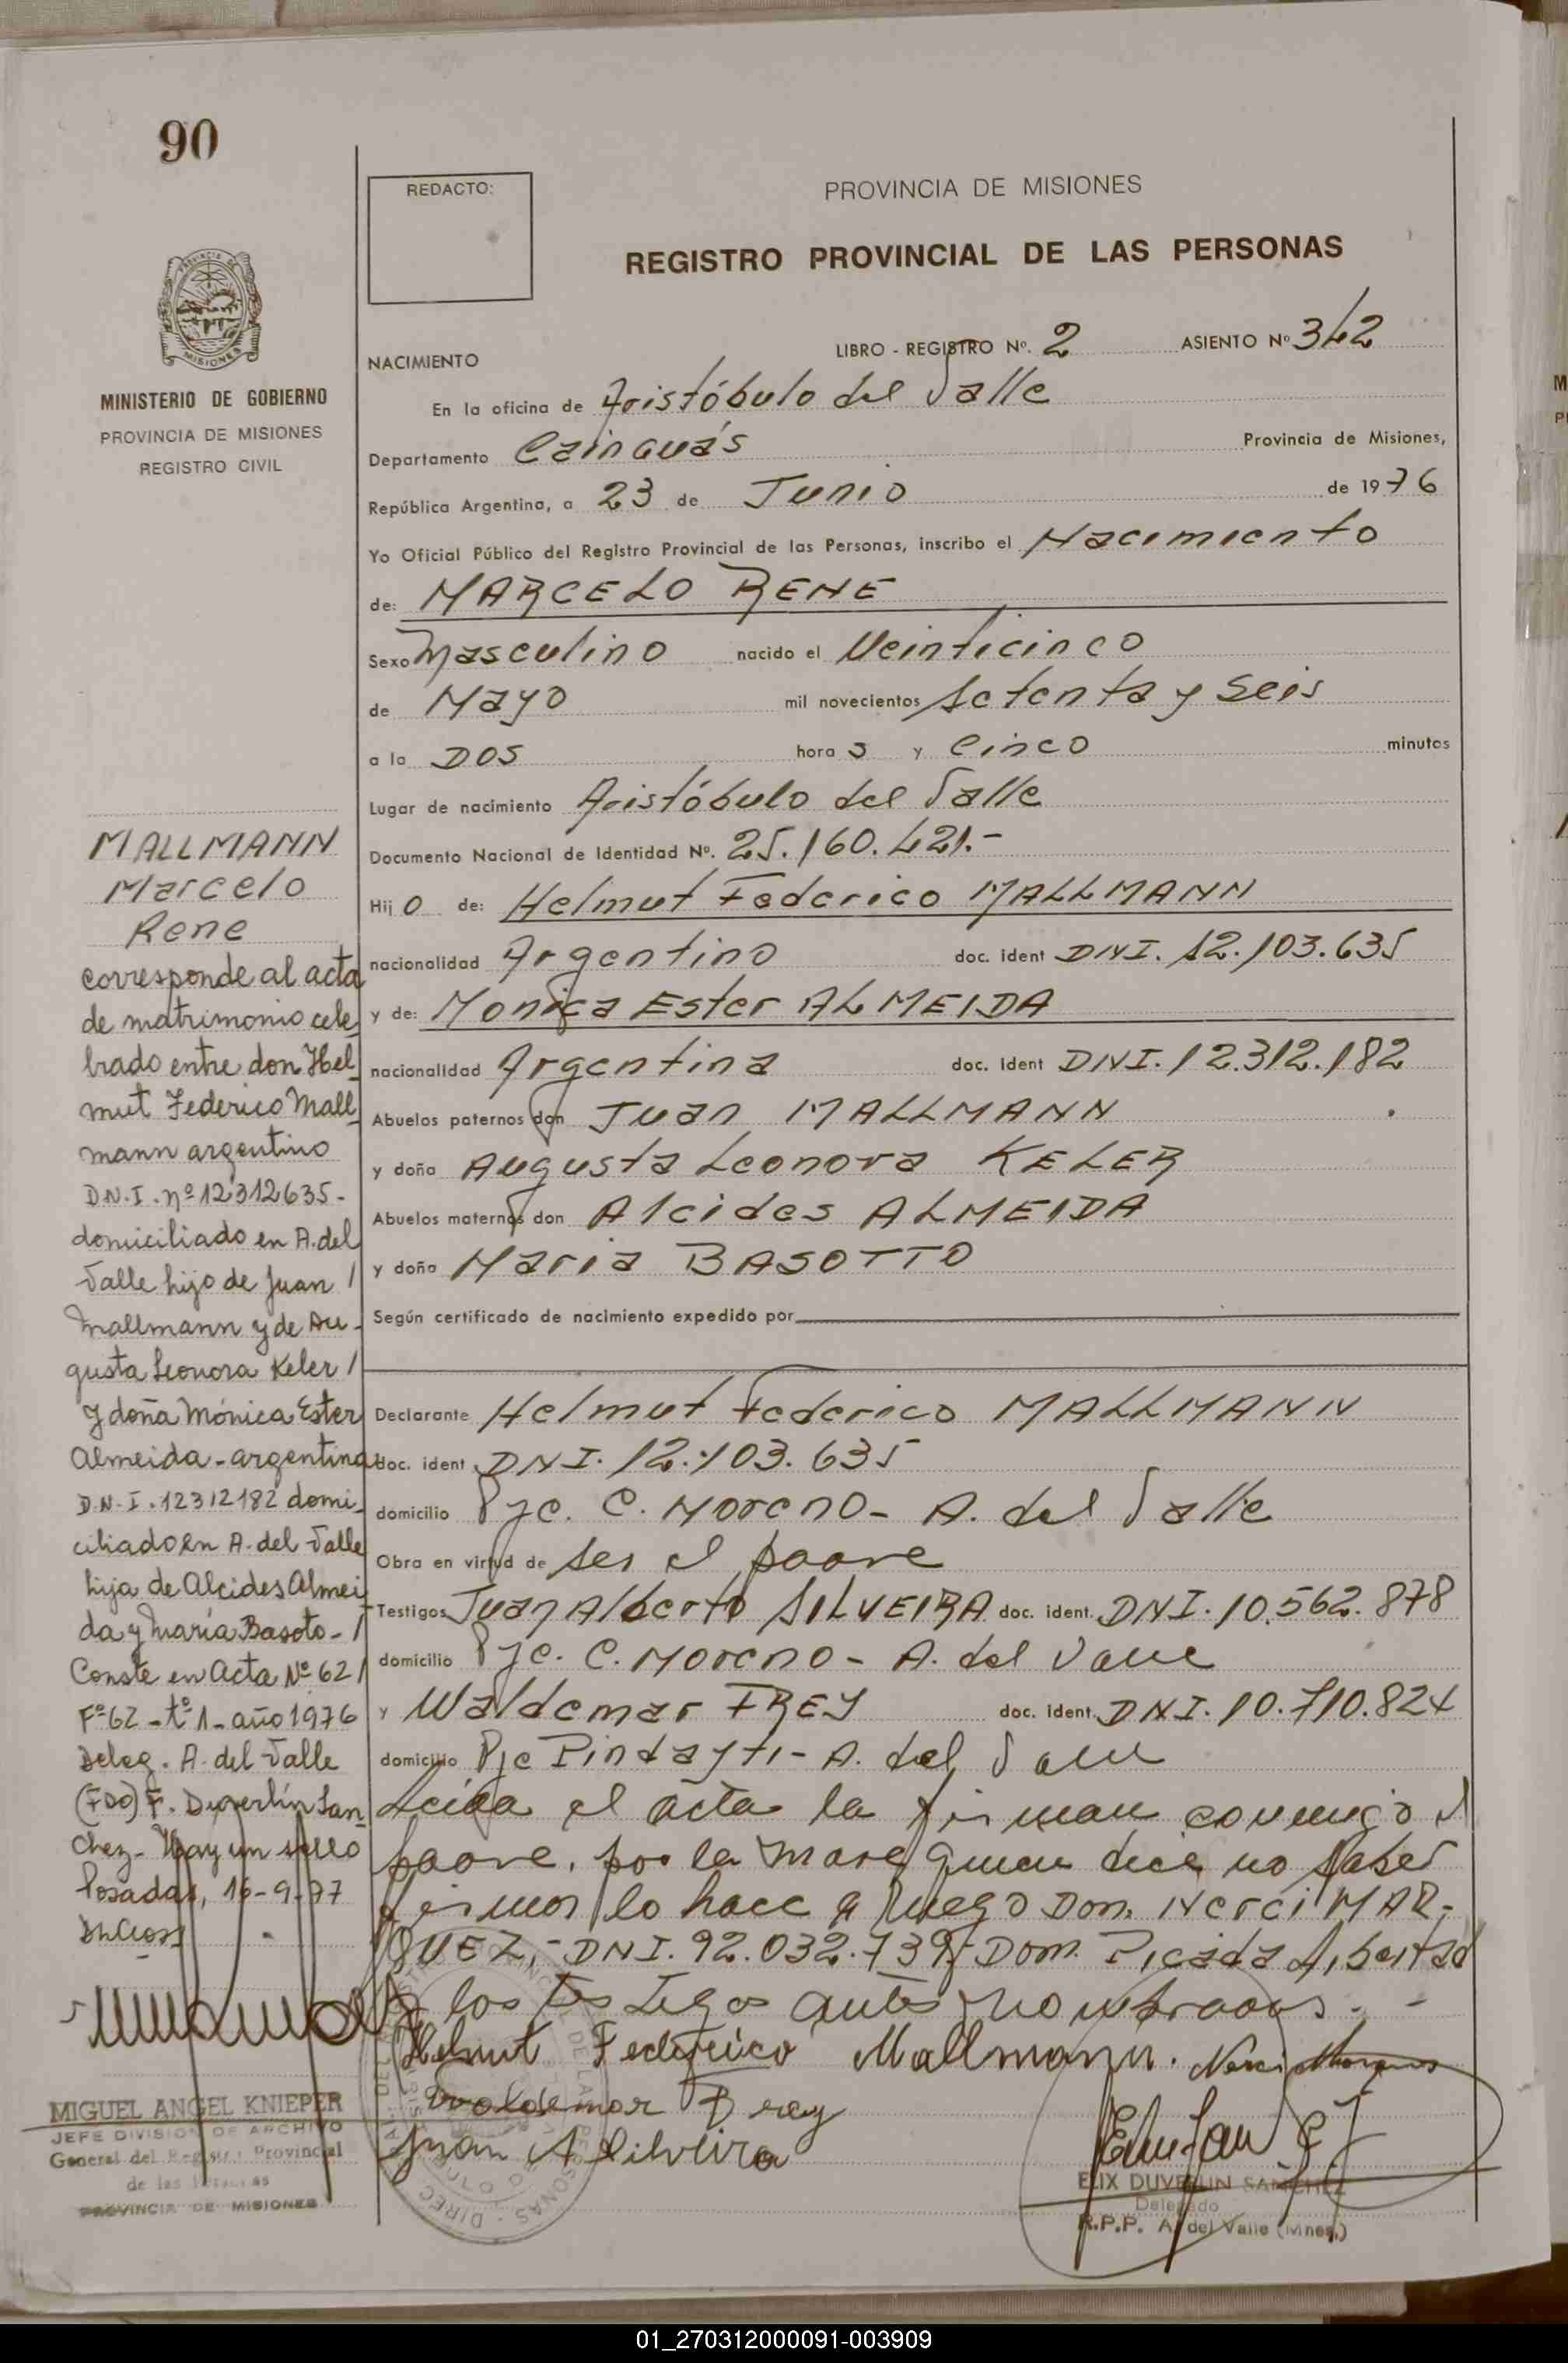 90
REDACTO:
PROVINCIA DE MISIONES
REGISTRO PROVINCIAL DE LAS PERSONAS
MISIONES
MINISTERIO DE GOBIERNO
PROVINCIA DE MISIONES
REGISTRO CIVIL
LIBRO - REGISTRO Nº. 2 ASIENTO Nº 342
NACIMIENTO
En la oficina de Aristóbulo del Valle
Departamento Cainguás Provincia de Misiones,
República Argentina, a 23 de Junio de 1976
Yo Oficial Público del Registro Provincial de las Personas, inscribo el Nacimiento
de: MARCELO RENE
Sexo Masculino nacido el Veinticinco
de Mayo mil novecientos Setenta y Seis
a la DOS hora s y Cinco minutos
Lugar de nacimiento Aristóbulo del Valle
Documento Nacional de Identidad Nº. 25.160.421.-
Hij o de: Helmut Federico MALLMANN
nacionalidad Argentino doc. ident DNI. 12.103.635
y de: Monica Ester ALMEIDA
nacionalidad Argentina doc. ident DNI. 12.312.182
Abuelos paternos don Juan MALLMANN
y doña Augusta Leonora KELER
Abuelos maternos don Alcides ALMEIDA
y doña Maria BASOTTO
Según certificado de nacimiento expedido por
Declarante Helmut Federico MALLMANN
doc. ident DNI. 12.103.635
domicilio Pje. C. Moreno - A. del Valle
Obra en virtud de ser el padre
Testigos Juan Alberto SILVEIRA doc. ident. DNI. 10.562.878
domicilio Pje. C. Moreno - A. del Valle
y Waldemar FREY doc. ident. DNI. 10.710.824
domicilio Pje Pindayti - A. del Valle
Leida el acta la firman conmigo el
padre, por la madre quien dice no saber
firmar lo hace a ruego Don. Nerci MAR-
QUEZ,- DNI. 92.032.739- Dom. Picada Libertad
y los testigos antes nombrados. -
Helmut Federico Mallmann. Nerci
Waldemar Frey
Juan A Silveira
ELIX DUVERLIN SANCHEZ
Delegado
R.P.P. A. del Valle (Mnes.)
MALLMANN
Marcelo
Rene
corresponde al acta
de matrimonio cele
brado entre don Hel
mut Federico Mall
mann argentino
D.N.I. nº 12312635-
domiciliado en A. del
Valle hijo de Juan /
Mallmann y de Au-
gusta Leonora Keler /
y doña Mónica Ester
Almeida - argentina
D.N.I. 12312182 domi
ciliado en A. del Valle
hija de Alcides Almei
da y María Basoto - /
Conste en Acta Nº 62 /
Fº 62 - tº 1 - año 1976
Deleg. A. del Valle
(FDO) F. Duverlín San
chez - Hay un sello
Posadas, 16-9-77
MIGUEL ANGEL KNIEPER
JEFE DIVISION DE ARCHIVO
General del Registro Provincial
de las Personas
PROVINCIA DE MISIONES
01_270312000091-003909